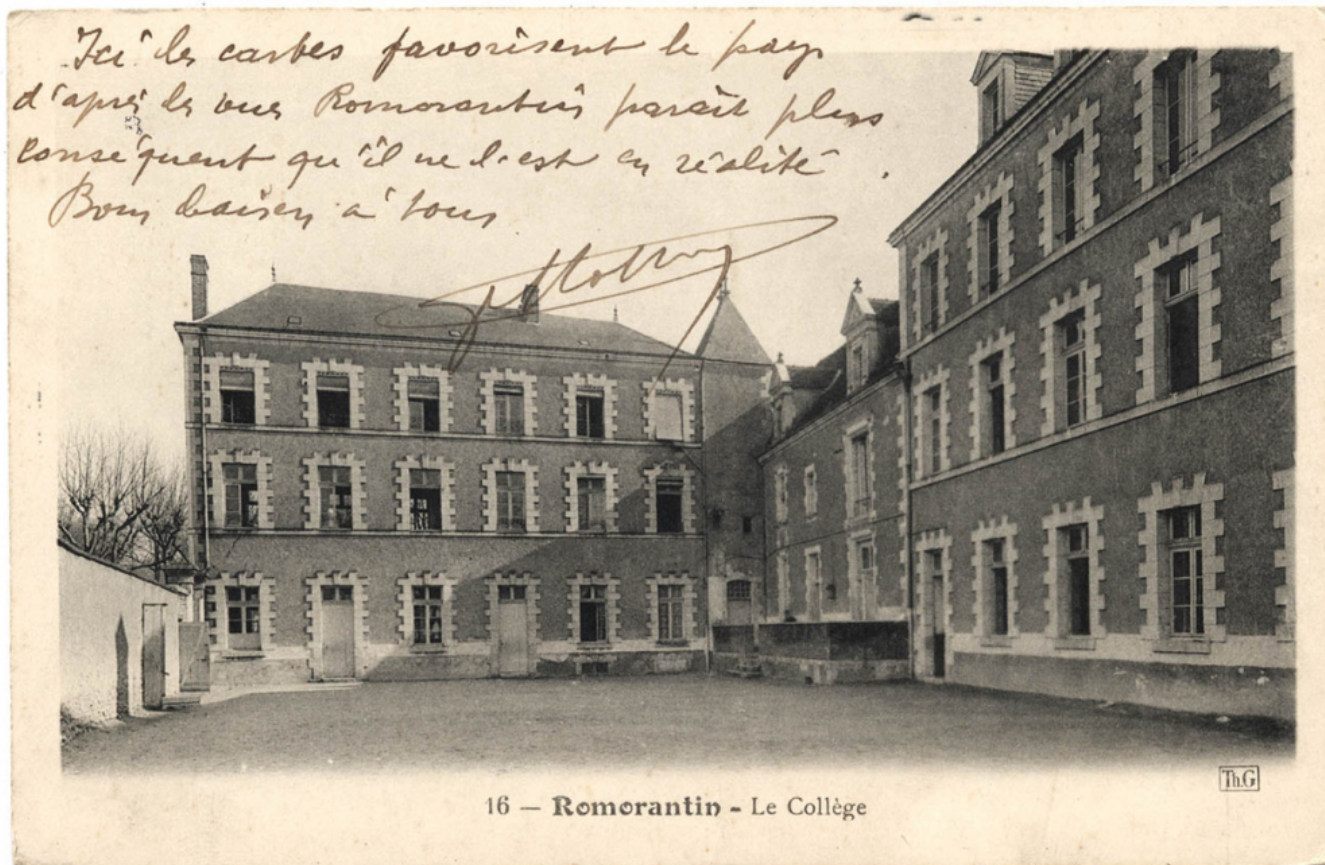 Ici les cartes favorisent le pays
d'après les vues Romorantin paraît plus
conséquent qu'il ne l'est en réalité.
Bons baisers à tous
Th.G
16 — Romorantin - Le Collège